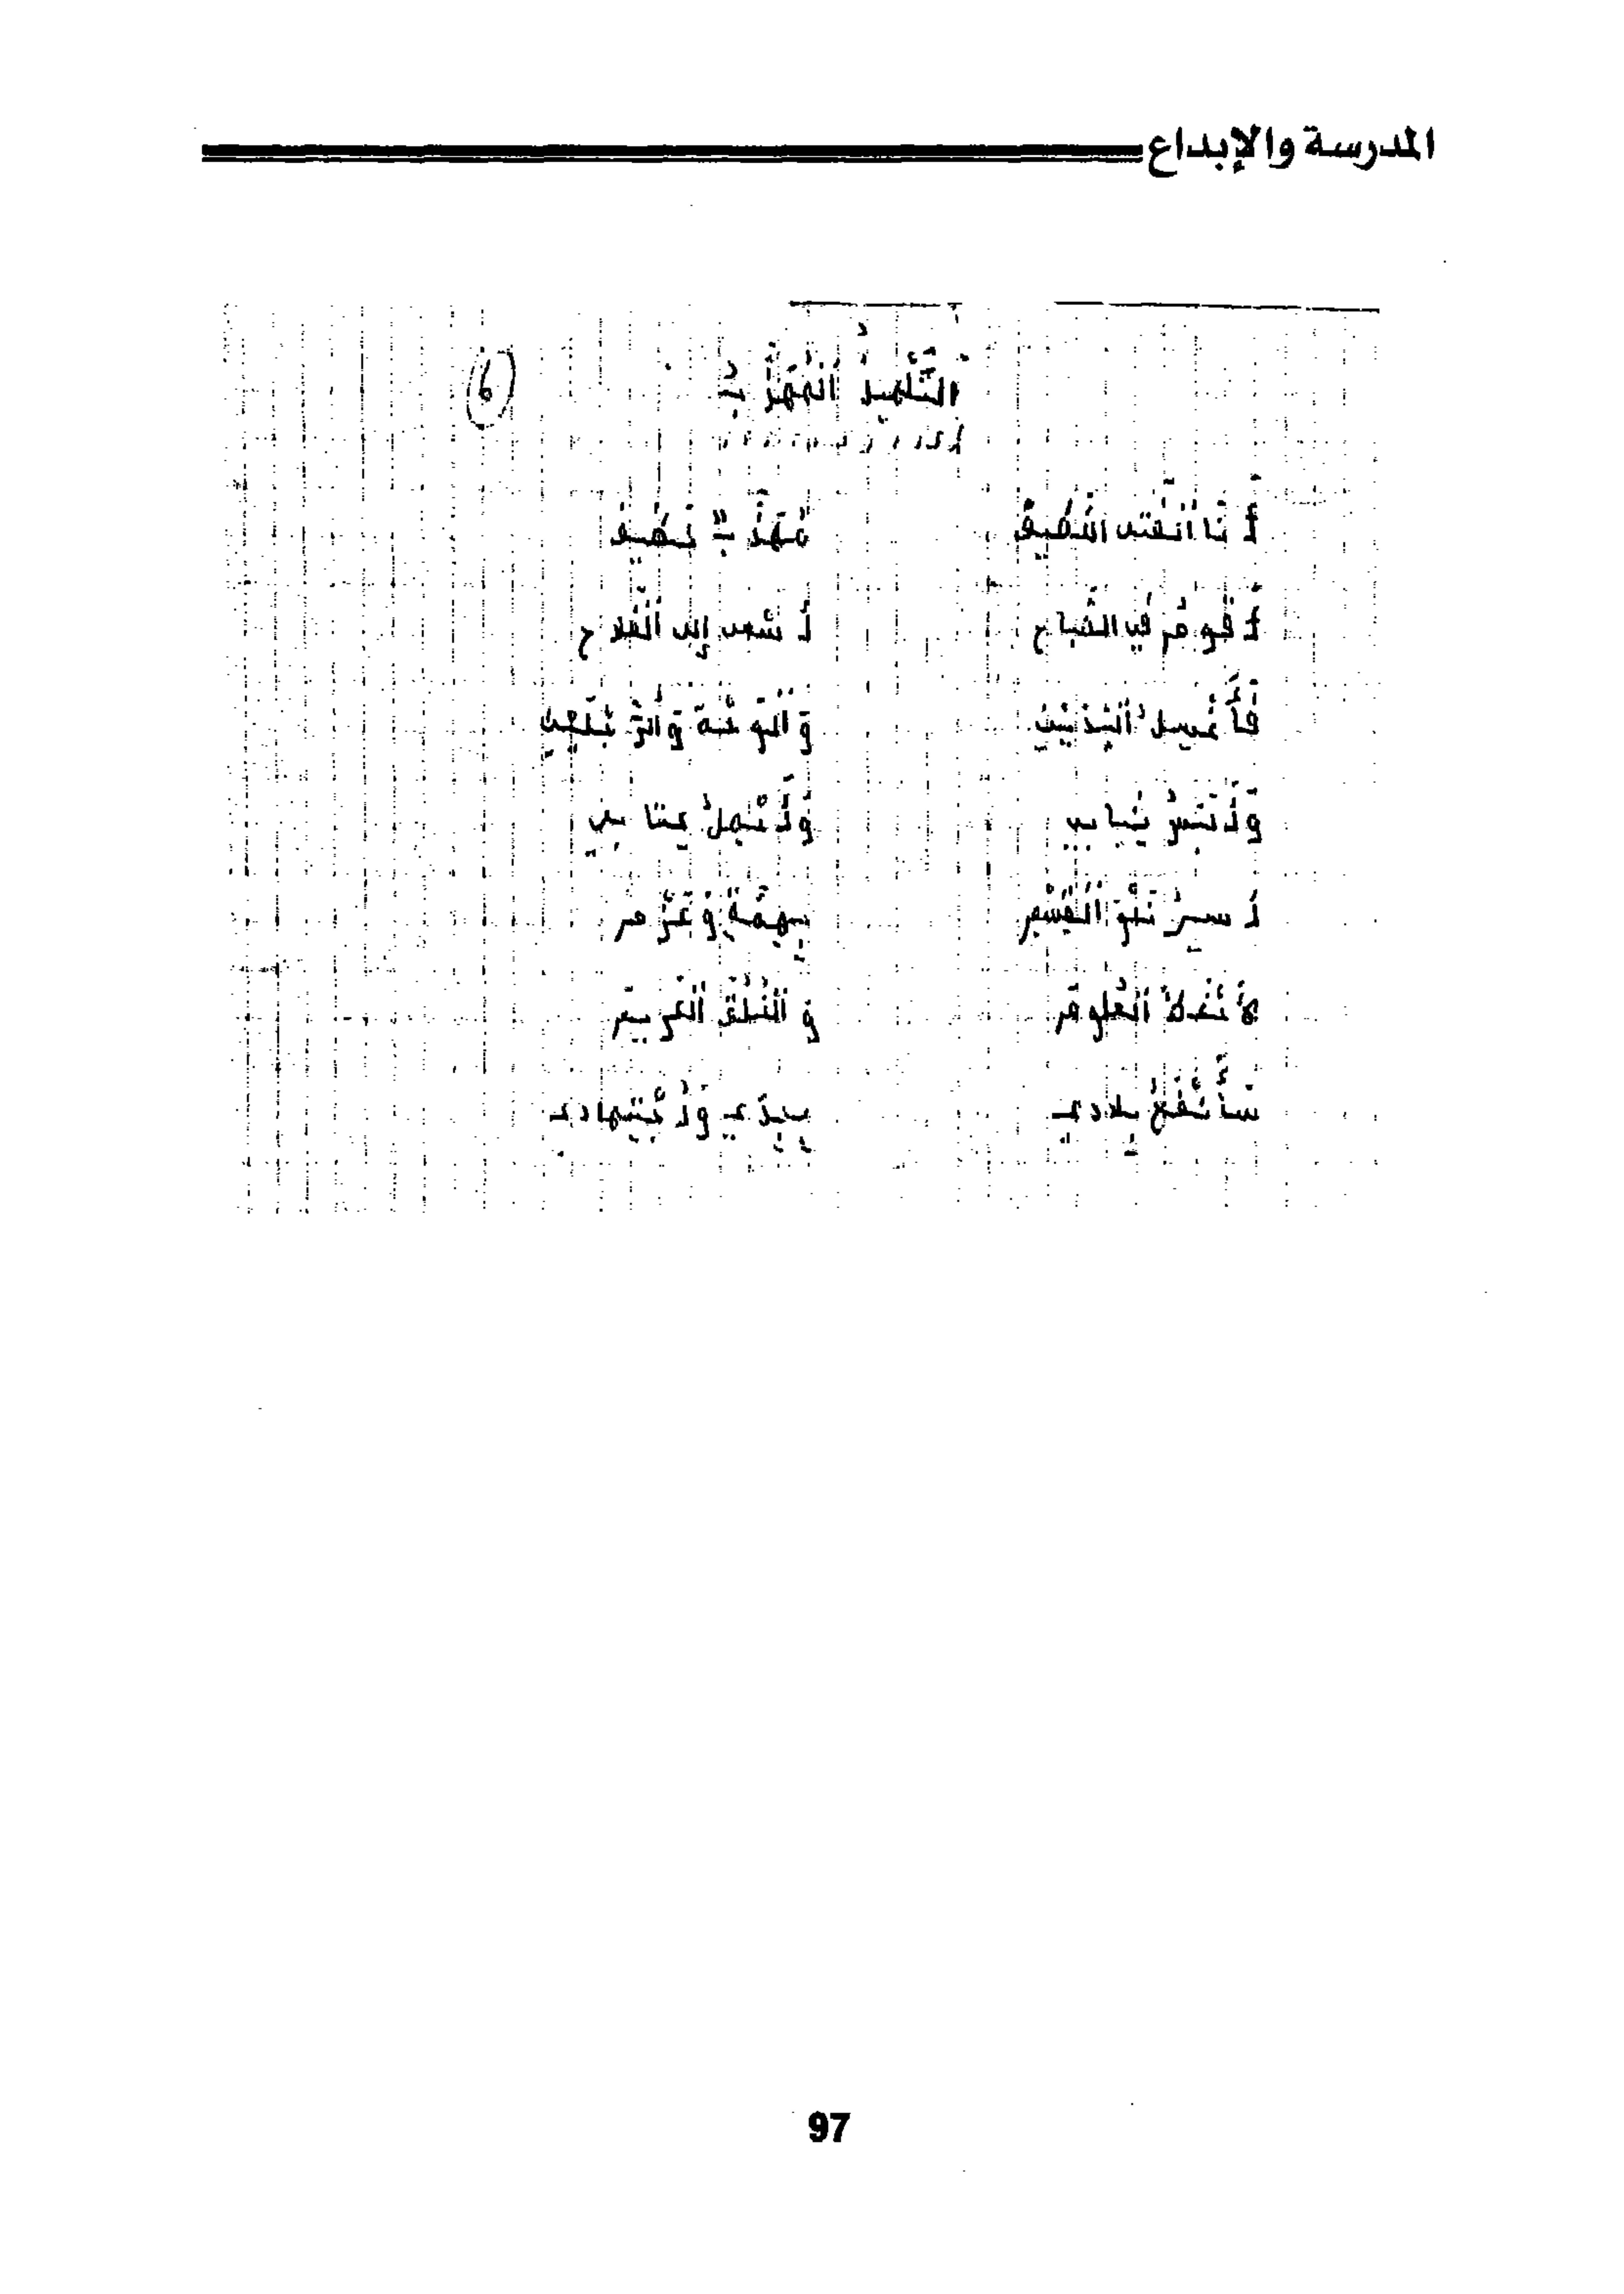 المدرسة والإبداع
التِّلْمِيذُ الْمُهَذَّبُ
6
أَنَا الْفَتَى النَّظِيفُ مُهَذَّبٌ نَظِيفُ
أَقُومُ فِي الصَّبَاحِ أَسْعَى إِلَى الْفَلَاحِ
فَأَغْسِلُ الْيَدَيْنِ وَالْوَجْهَ وَالرِّجْلَيْنِ
وَأَلْبَسُ ثِيَابِي وَأَحْمِلُ كِتَابِي
أَسِيرُ نَحْوَ الْقِسْمِ بِهِمَّةٍ وَعَزْمِ
لِآخُذَ الْعُلُومَ وَالْخُلُقَ الْكَرِيمَ
سَأَنْفَعُ بِلَادِي بِجِدِّي وَاجْتِهَادِي
97